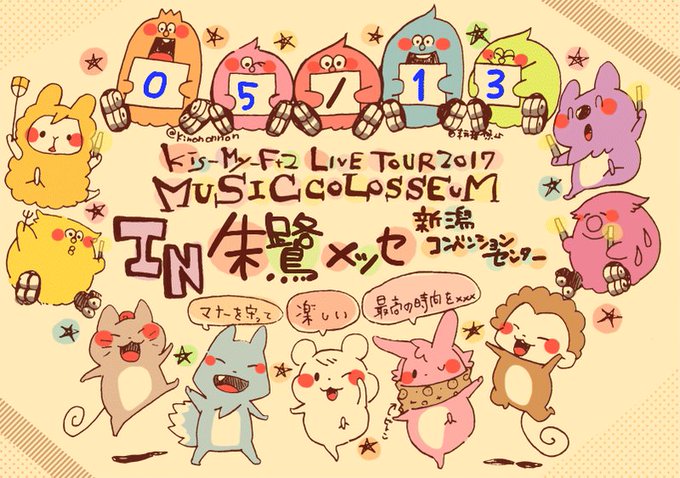 05/13
@kinonannon
Kis-My-Ft2 LIVE TOUR 2017
MUSIC COLOSSEUM
IN 朱鷺メッセ
新潟
コンベンション
センター
マナーを守って
楽しい
最高の時間を×××